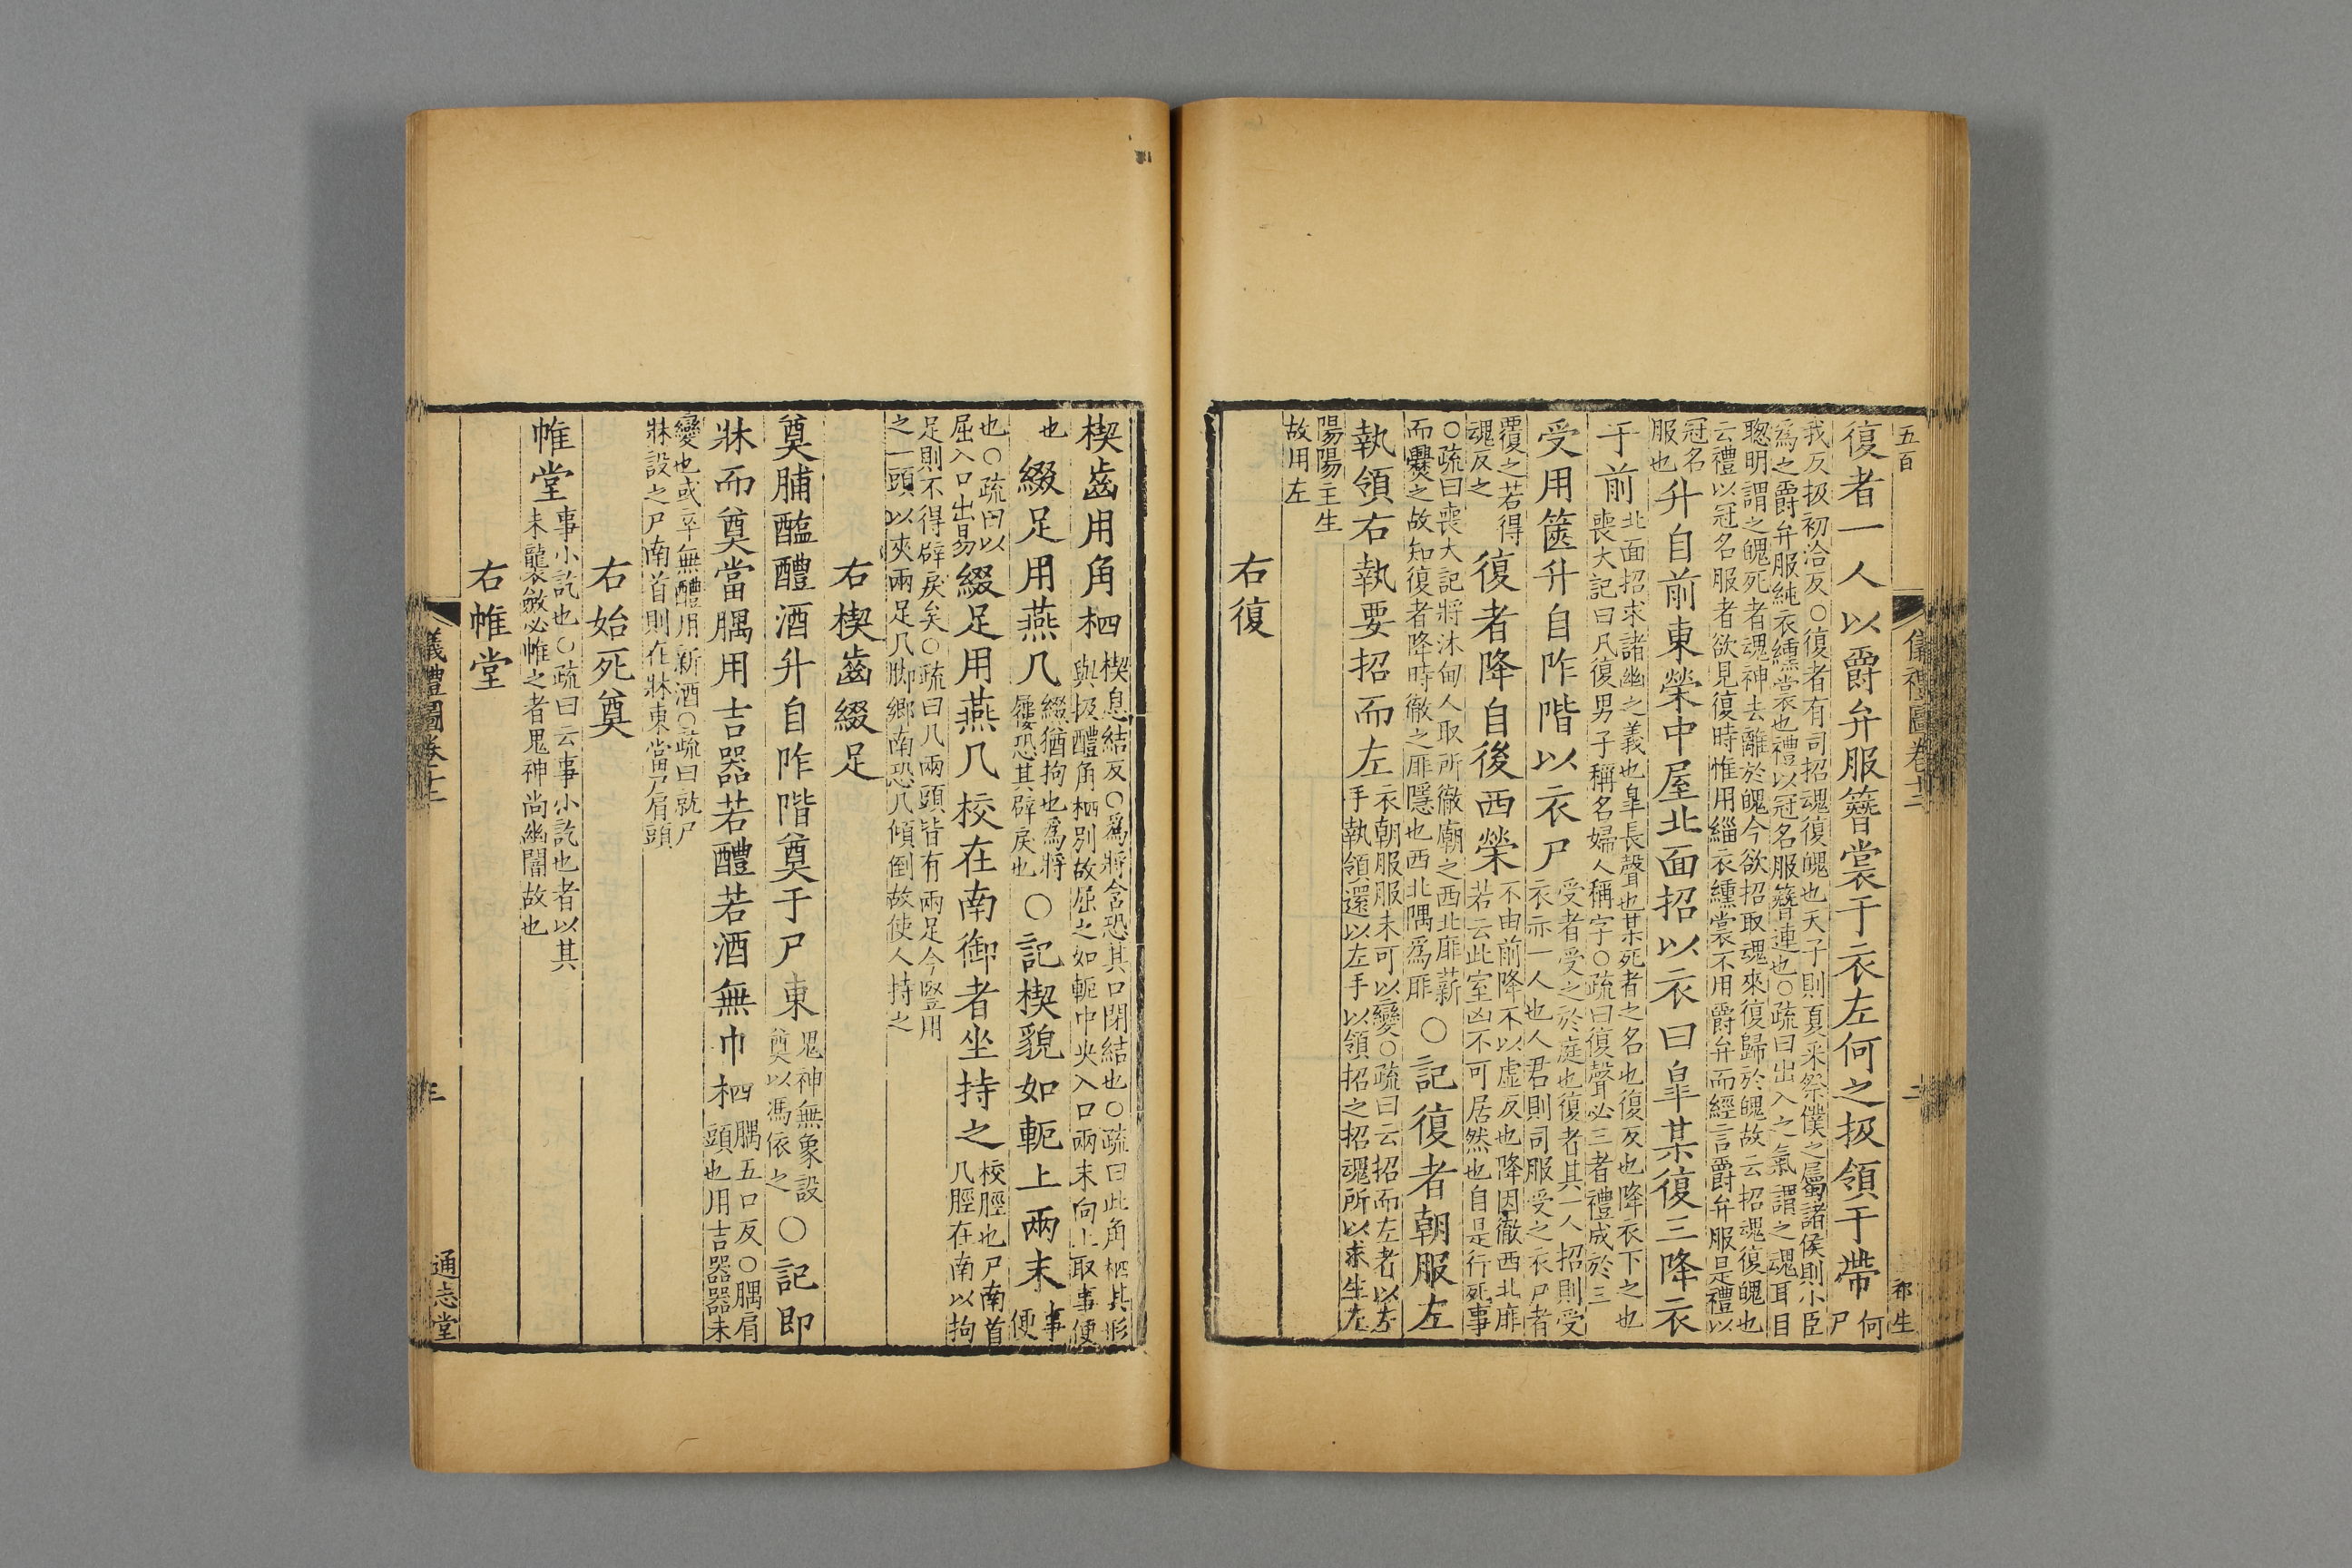 五百
儀禮圖卷十二
二
祁生
復者一人以爵弁服簪裳于衣左何之扱領于帶何
尸
我反扱初洽反○復者有司招魂復魄也天子則夏采祭僕之屬諸侯則小臣
爲之爵弁服純衣纁裳也禮以冠名服簪連也○疏曰出入之氣謂之魂耳目
聦明謂之魄死者魂神去離於魄今欲招取魂來復歸於魄故云招魂復魄也
云禮以冠名服者欲見復時惟用緇衣纁裳不用爵弁而經言爵弁服是禮以
冠名
服也升自前東榮中屋北面招以衣曰皐某復三降衣
于前北面招求諸幽之義也皐長聲也某死者之名也復反也降衣下之也
喪大記曰凡復男子稱名婦人稱字○疏曰復聲必三者禮成於三
受用篋升自阼階以衣尸受者受之於庭也復者其一人招則受
衣亦一人也人君則司服受之衣尸者
覆之若得
魂反之復者降自後西榮不由前降不以虛反也降因徹西北厞
若云此室凶不可居然也自是行死事
○疏曰喪大記將沐甸人取所徹廟之西北厞薪
而爨之故知復者降時徹之厞隱也西北隅爲厞○記復者朝服左
執領右執要招而左衣朝服服未可以變○疏曰云招而左者以左
手執領還以左手以領招之招魂所以求生左
陽陽主生
故用左
右復
楔齒用角柶楔息結反○爲將含恐其口閉結也○疏曰此角柶其形
與扱醴角柶別故屈之如軛中央入口兩末向上取事便
也綴足用燕几綴猶拘也爲將
屨恐其辟戾也○記楔貌如軛上兩末事
便
也○疏曰以
屈入口出易綴足用燕几校在南御者坐持之校脛也尸南首
几脛在南以拘
足則不得辟戾矣○疏曰几兩頭皆有兩足今豎用
之一頭以夾兩足几脚鄉南恐几傾倒故使人持之
右楔齒綴足
奠脯醢醴酒升自阼階奠于尸東鬼神無象設
奠以馮依之○記即
牀而奠當腢用吉器若醴若酒無巾柶腢五口反○腢肩
頭也用吉器器未
變也或卒無醴用新酒○疏曰就尸
牀設之尸南首則在牀東當尸肩頭
右始死奠
帷堂事小訖也○疏曰云事小訖也者以其
未襲斂必帷之者鬼神尚幽闇故也
右帷堂
儀禮圖卷十二
三
通志堂